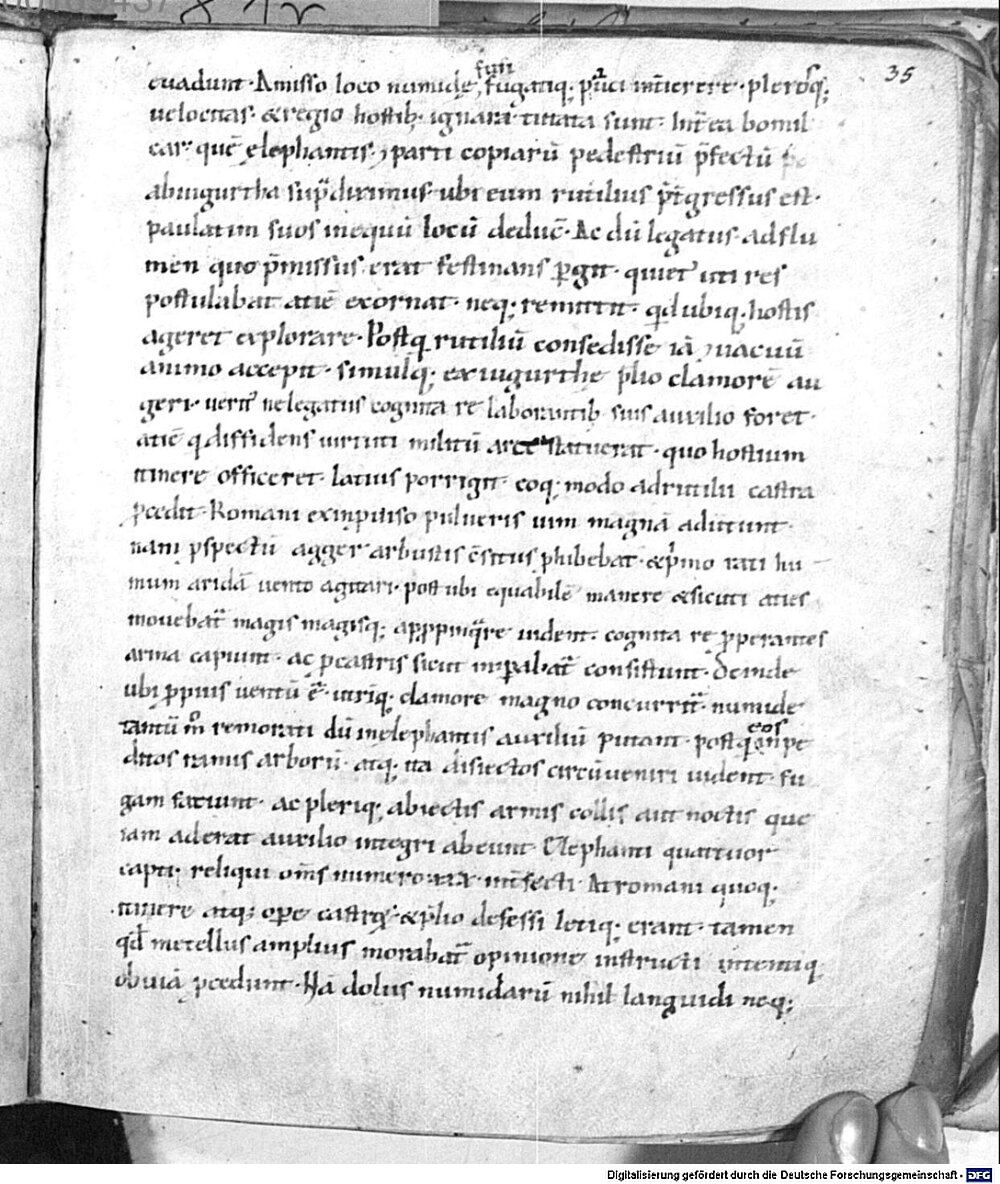 35
euadunt. Amisso loco numide, fugatiq; pauci interiere. pleroſq;
uelocitas. & regio hostib; ignara tutata sunt. Int̄ea bomil
car. quē elephantis, & parti copiarū pedestriū p̄fectū
abiugurtha sup̄ diximus. ubi eum rutilius p̄t̄gressus est.
paulatim suos in equū locū deduc̄. Ac dū legatus adflu
men quo p̄missus erat festinans p̄git. quiet̄ uti res
postulabat atiē exornat. neq; remittit qd̄ ubiq; hostis
ageret explorare. Postq̄ rutiliū consedisse iā & uacuū
animo accepit. simulq; ex iugurthe p̄lio clamorē au
geri. uerit̄ ne legatus cognita re laborantib; suis auxilio foret.
atiē q̄ diffidens uirtuti militū arte statuerat. quo hostium
itinere officeret. latius porrigit. eoq; modo adrutilii castra
p̄cedit. Romani eximp̄uiso pulueris uim magnā aduertunt.
nam p̄spectū agger arbustis c̄situs p̄hibebat. & p̄imo rati hu
mum aridā uento agitari. post ubi equabilē manere & sicuti aties
mouebat̄ magis magisq; app̄pinq̄re uident. cognita re p̄perantes
arma capiunt. ac p̄castris sicut imp̄abat̄ consistunt. deinde
ubi p̄pius uentū ē. utrīq; clamore magno concurrit̄. numide
tantū m̊ remorati dū inelephantis auxiliū putant. postq̄ eos inpe
ditos ramis arborū. atq; ita disiectos circūueniri uident. fu
gam faciunt. ac pleriq; abiectis armis collis aut noctis que
iam aderat auxilio integri abeunt. Elephanti quattuor
capti. reliqui om̄s numero xl. int̄fecti. At romani quoq;
itinere atq; op̄e castror̄ & p̄lio defessi letiq; erant. tamen
qd̄ metellus amplius morabat̄ opinione instructi intentiq
obuiā p̄cedunt. Nā dolus numidarū nihil languidi neq;
Digitalisierung gefördert durch die Deutsche Forschungsgemeinschaft - DFG